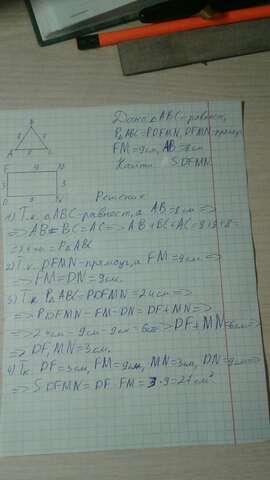 B
8 8
A 8 C
F 9 M
3 3
D 9 N
Дано: △ABC-равност,
P△ABC=PDFMN, DFMN-прямоуг.
FM=9см, AB=8см
Найти: SDFMN
Решение
1) Т.к. △ABC-равност, а AB=8см =>
=> AB=BC=AC => AB+BC+AC=8+8+8=
=24см = P△ABC
2) Т.к. DFMN-прямоуг, а FM=9см =>
=> FM=DN=9см.
3) Т.к. P△ABC=PDFMN=24см =>
=> PDFMN-FM-DN=DF+MN =>
=> 24см-9см-9см=6см => DF+MN=6см =>
=> DF, MN=3см.
4) Т.к. DF=3см, FM=9см, MN=3см, DN=9см =>
=> SDFMN=DF·FM=3·9=27см²